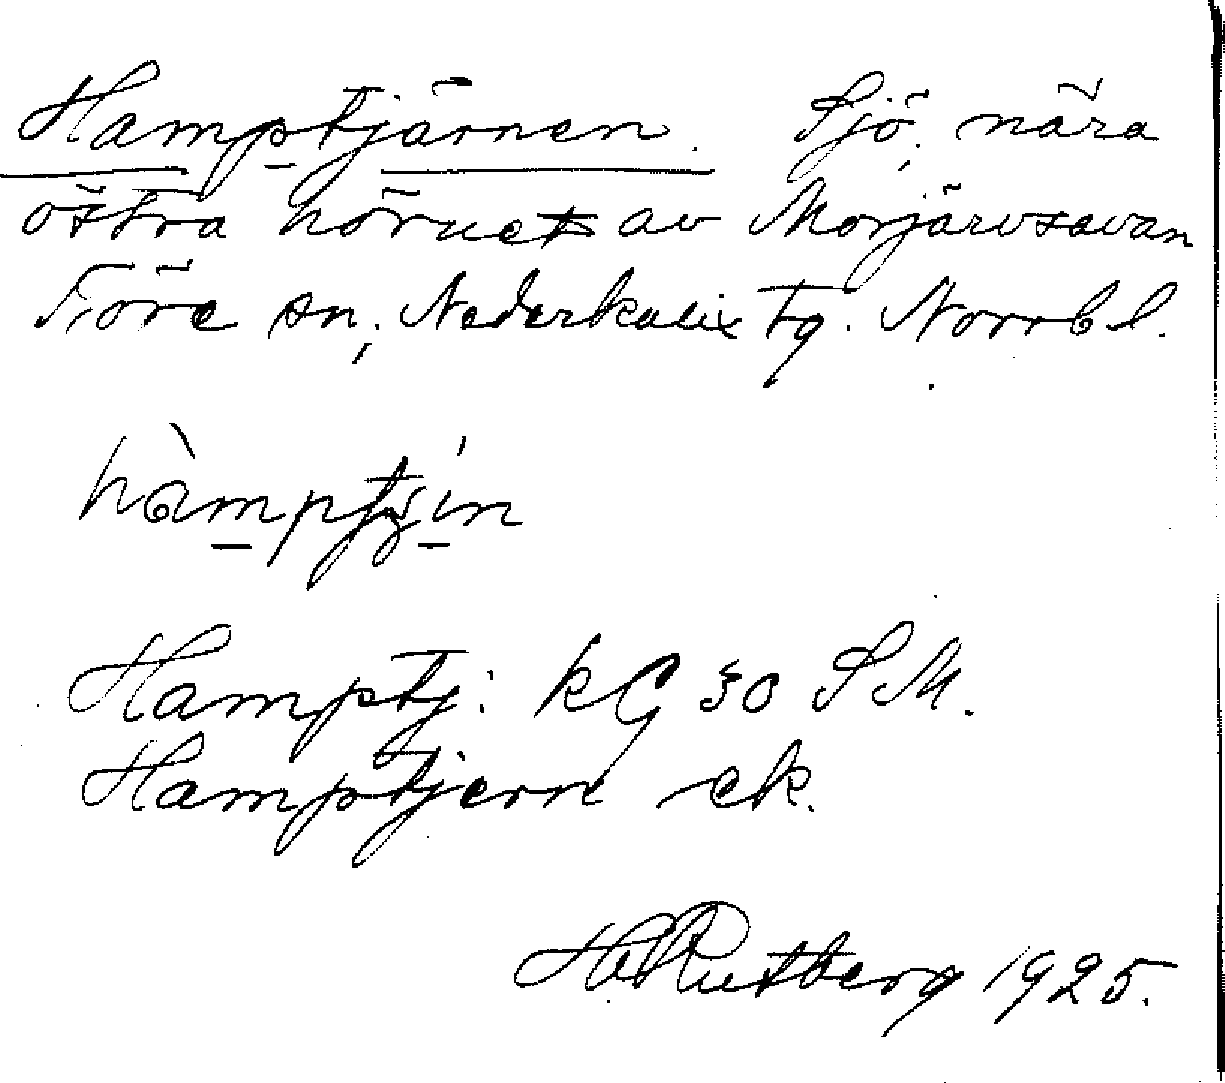 Hamptjärnen. Sjö, nära
östra hörnet av Morjärvsavan
Töre sn, Nederkalix tg. Norrb l.
Hamptj: kG 30 S M.
Hamptjern ek.
H. Rutberg 1925.